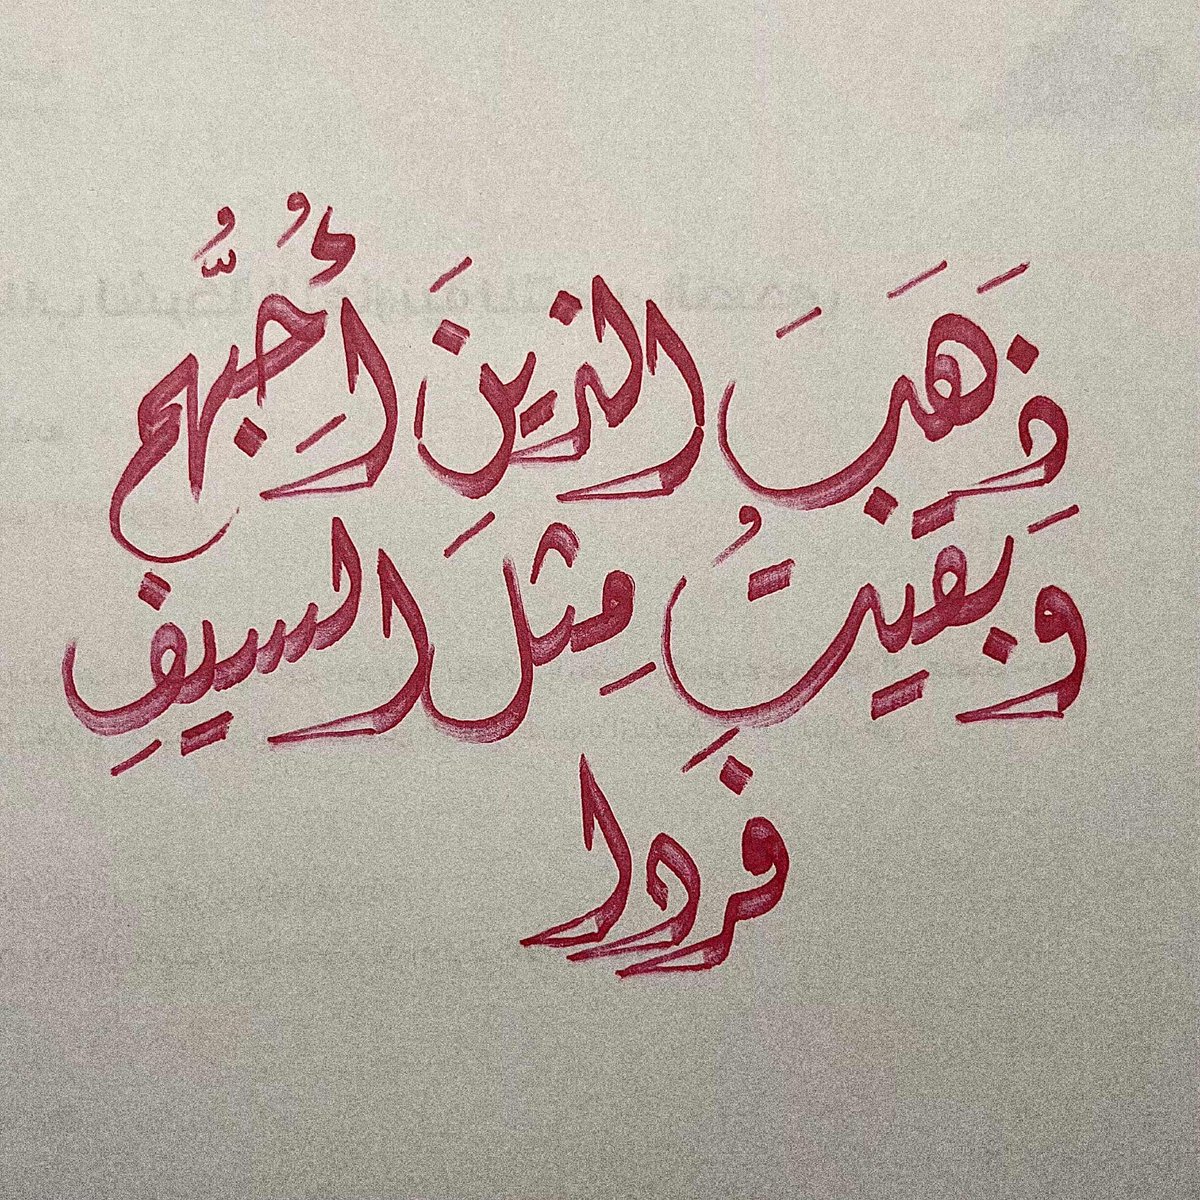 ذَهَبَ الذينَ أُحِبُّهُم
وَبَقَيتُ مِثلَ السيفِ
فَردا